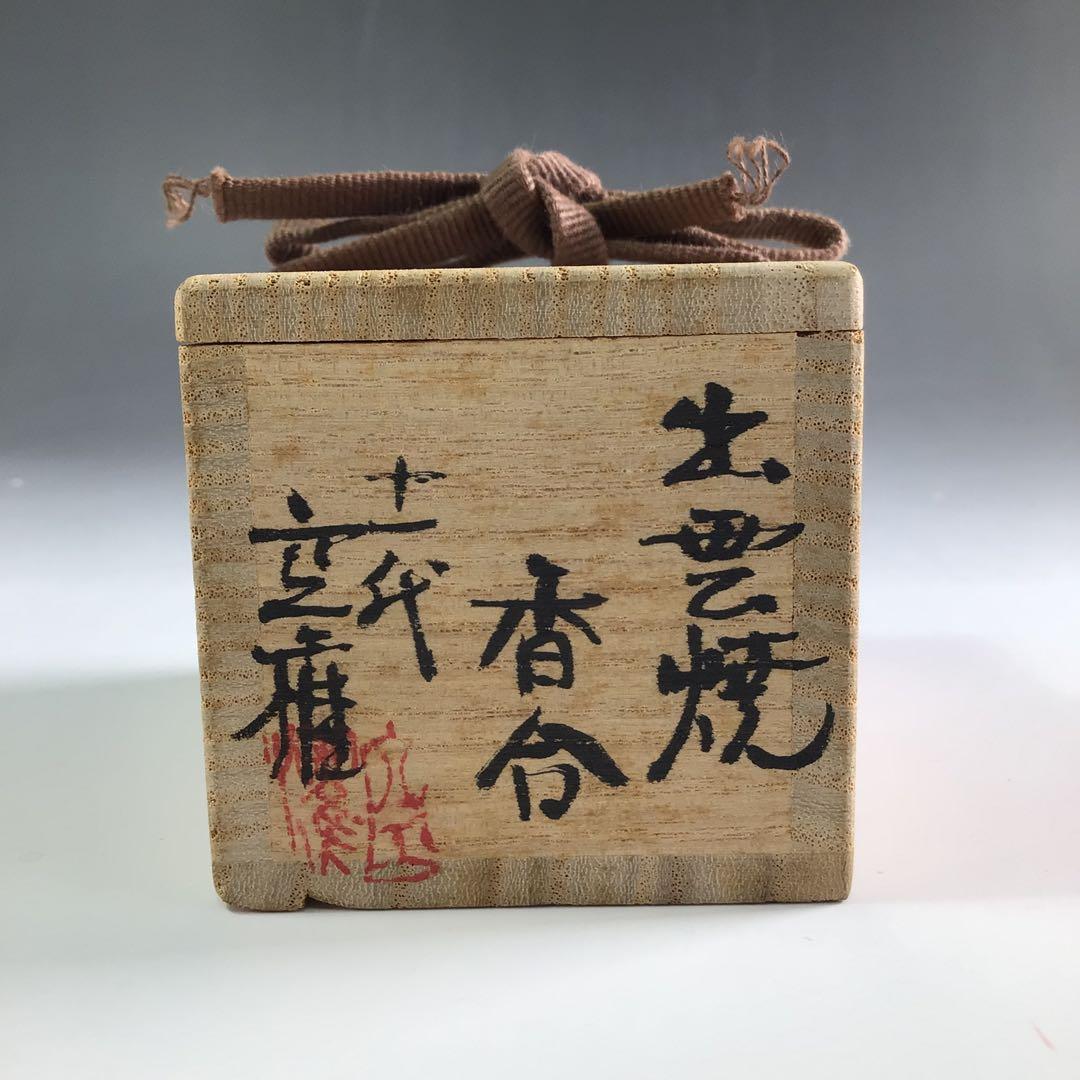 出雲焼
香合
十一代
空権